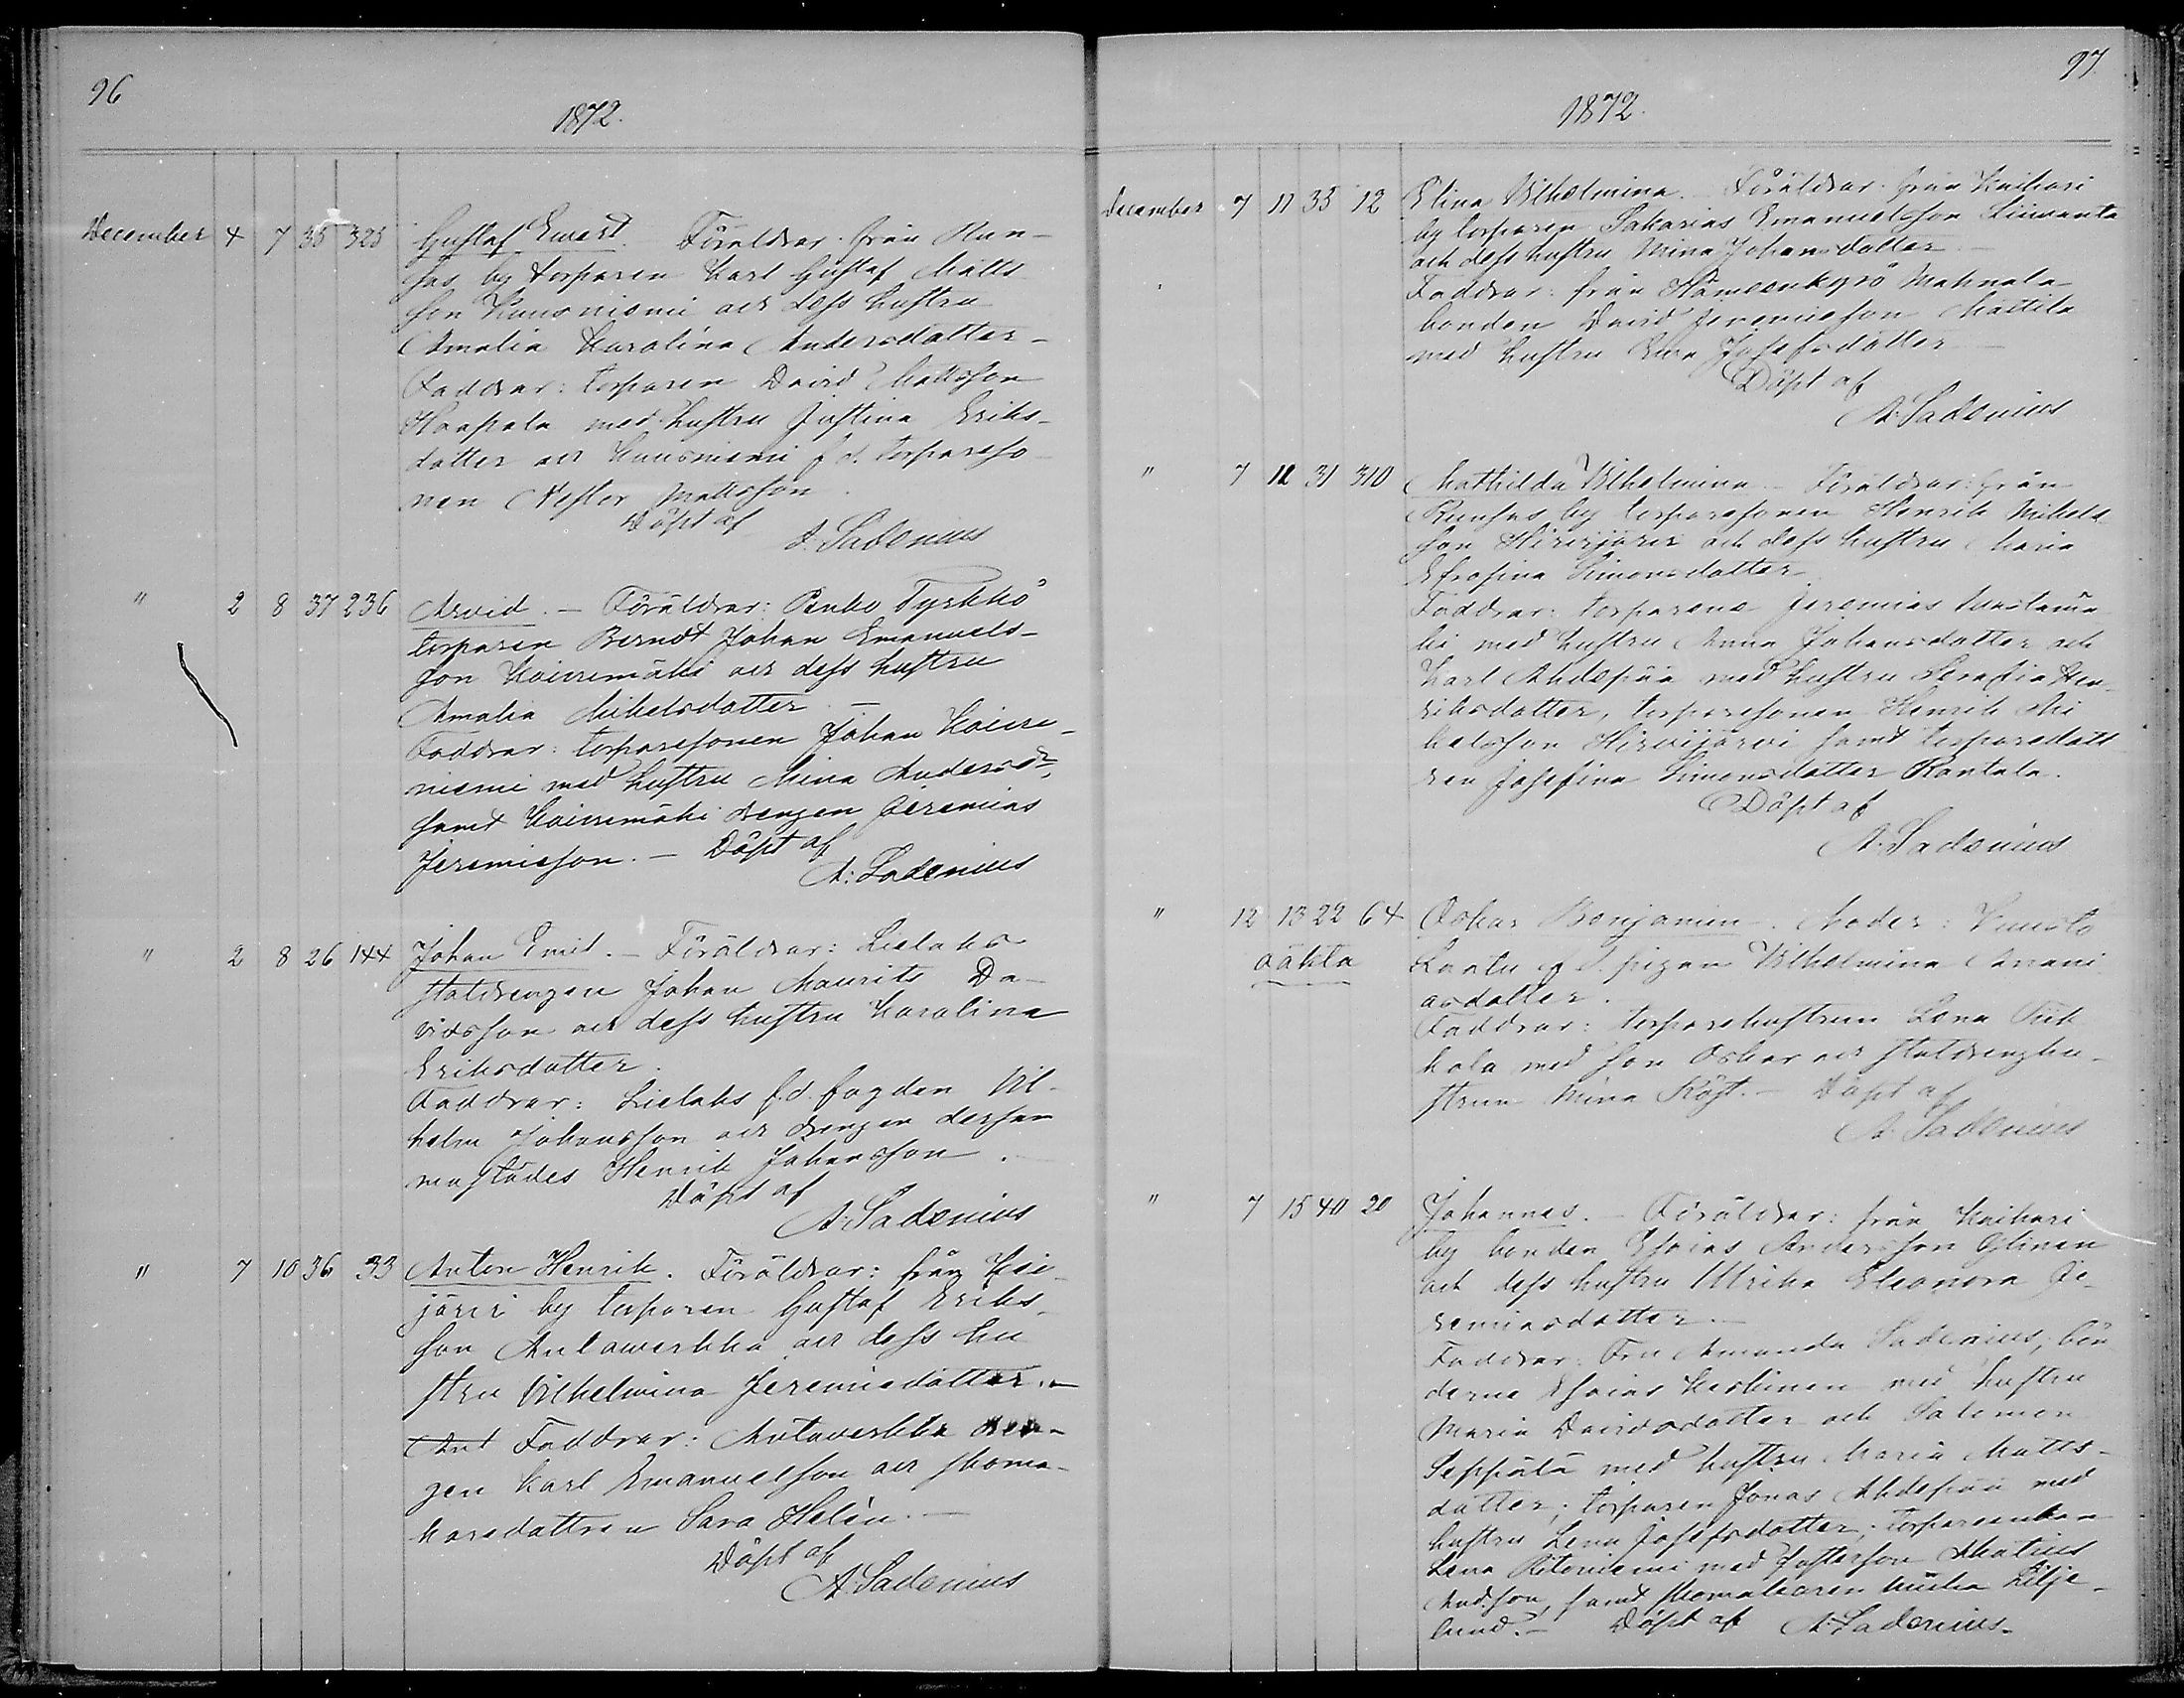 96
1872.
December 4 7 35 325 Gustaf Evert. Föräldrar: från Run-
sas by torparen Karl Gustaf Matts
son Kuusniemi och dess hustru
Amalia Karolina Andersdotter.
Faddrar: torparen David Mattsson
Haapala med hustru Justina Eriks-
dotter och Kuusniemi f.d. torpareso-
nen Nestor Mattsson.
Döpt af
A. Sadenius
" 2 8 37 236 Arvid. — Föräldrar: Penko Tyrkkö
torparen Berndt Johan Emanuels-
son Koivumäki och dess hustru
Amalia Mikelsdotter. —
Faddrar: torparesonen Johan Koivu-
niemi med hustru Mina Andersdr,
samt Koivumäki drengen Jeremias
Jeremiesson. — Döpt af
A: Sadenius
" 2 8 26 144 Johan Emil. — Föräldrar: Lielaks
statdrengen Johan Maurits Da-
vidsson och dess hustru Karolina
Eriksdotter.
Faddrar: Lielaks f.d. fogden Vil-
helm Johansson och drengen dersam
mastädes Henrik Johansson.
Döpt af
A: Sadenius
" 7 10 36 33 Anton Henrik. Föräldrar: från
järvi by torparen Gustaf Eriks-
son och dess hu
stru Vilhelmina Jeremiedotter. —
Ant Faddrar: dren-
gen Karl Emanuelsson och skoma-
karedottren Sara Helén. —
Döpt af
A: Sadenius
97
1872.
December 7 11 35 12 Elina Vilhelmina. — Föräldrar: från Kaihari
by torparen Sakarias Emanuelsson
och dess hustru Mina Johansdotter. —
Faddrar: från Hämeenkyrö Mahnala
bonden David Jeremiesson Mattila
med hustru Eva Josefsdotter —
Döpt af
A. Sadenius
" 7 11 31 310 Mathilda Vilhelmina. — Föräldrar: från
Runsas by torparesonen Henrik Mikels
son Hirvijärvi och dess hustru Maria
Efrosina Simonsdotter.
Faddrar: torparene Jeremias
ki med hustru Anna Johansdotter och
Karl Ahdepää med hustru Serafia Hen-
riksdotter, torparesonen Henrik Mi
kelsson Hirvijärvi samt torparedott
ren Josefina Simonsdotter Rantala.
Döpt af
A. Sadenius
" 12 13 22 64 Oskar Benjamin. Moder:
oäkta f.d. pigan Vilhelmina
asdotter.
Faddrar: torparehustrun Lena
kola med son Oskar och statdrenghu-
strun Mina — Döpt af
A. Sadenius
" 7 15 40 20 Johannes. — Föräldrar: från Kaihari
by bonden Esaias Andersson
och dess hustru Ulrika Eleonora Je-
remiasdotter. —
Faddrar: Fru Amanda Sadenius, bön
derne Esaias Keskinen med hustru
Maria Davidsdotter och Salomon
Seppälä med hustru Maria Matts-
dotter; torparen Jonas Ahdepää med
hustru Lena Josefsdotter;
Lena Ritoniemi med fosterson
Andsson, samt skomakaren Lilje-
lund. — Döpt af A: Sadenius.